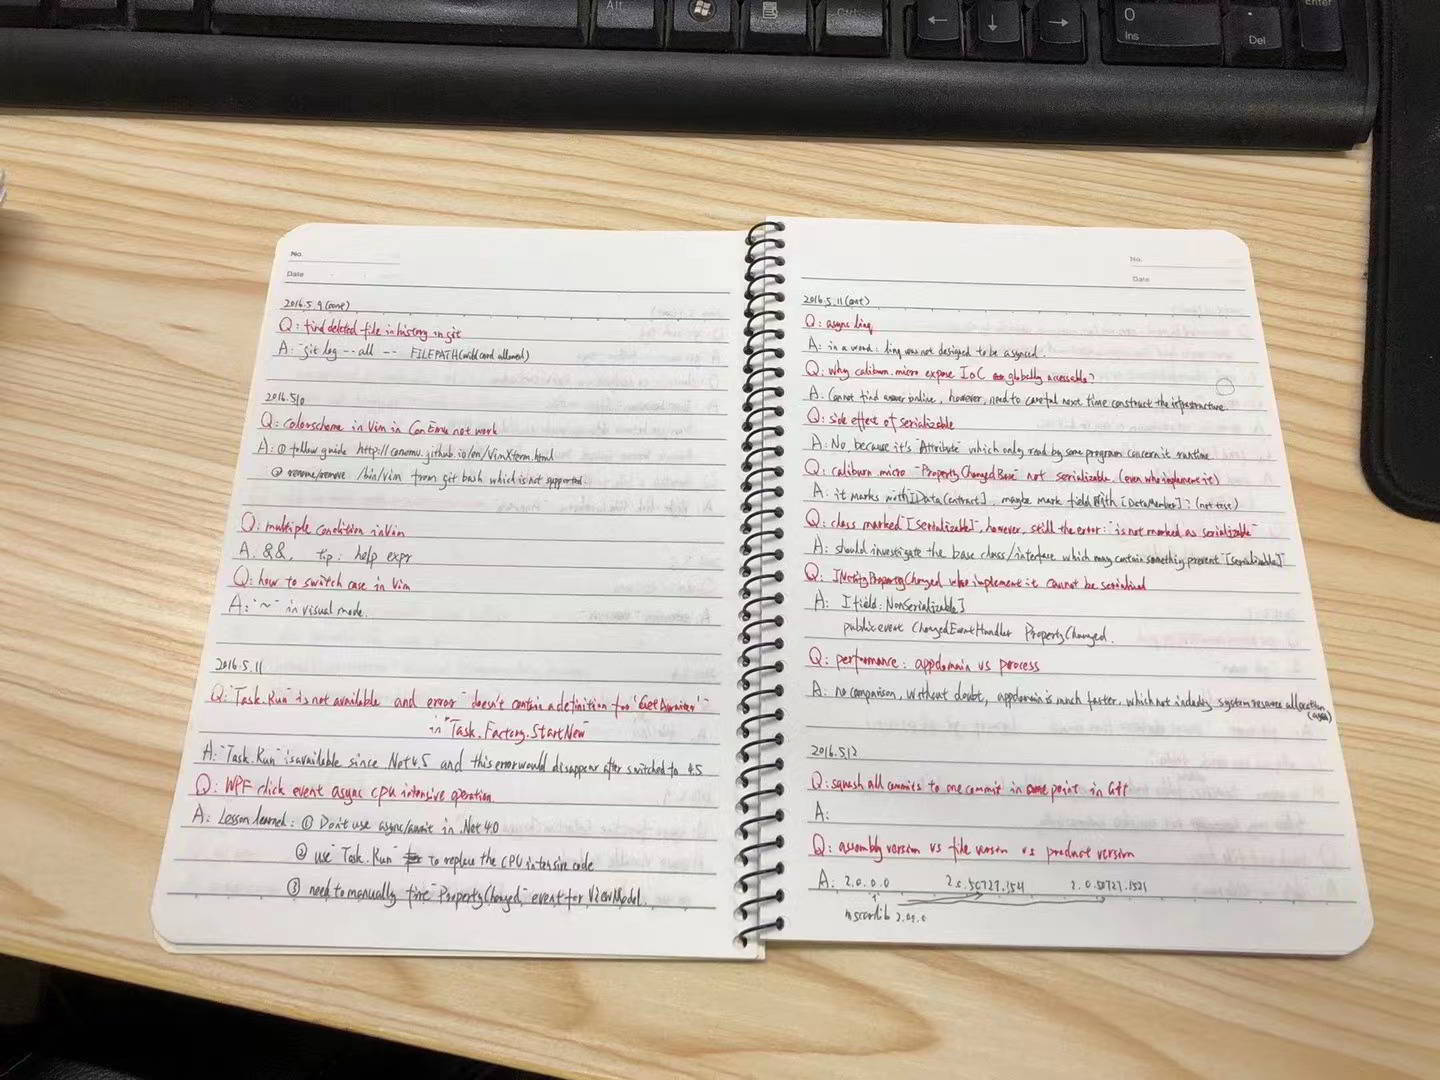 Alt
Ctrl
0
Ins
.
Del
Enter
No.
Date
2016.5.9 (cont)
Q: find deleted file in history in git
A: "git log --all -- FILEPATH (wild card allowed)
2016.5.10
Q: colorscheme in Vim in ConEmu not work
A: ① follow guide http://conemu.github.io/en/VimXterm.html
② rename/remove /bin/vim from git bash which is not supported.
Q: multiple condition in Vim
A. &&, tip: help expr
Q: how to switch case in Vim
A: "~" in visual mode.
2016.5.11
Q: "Task.Run" is not available and error "doesn't contain a definition for 'GetAwaiter'"
in "Task.Factory.StartNew"
A: "Task.Run" is available since Net 4.5 and this error would disappear after switched to 4.5
Q: WPF click event async cpu intensive operation.
A: Lesson learned: ① Don't use async/await in .Net 4.0
② use "Task.Run" to replace the CPU intensive code
③ need to manually fire "PropertyChanged" event for ViewModel.
No.
Date
2016.5.11 (cont)
Q: async linq
A: in a word: linq was not designed to be asynced.
Q: why caliburn.micro expose IoC globally accessable?
A. Cannot find answer online, however, need to careful next time construct the infrastructure.
Q: side effect of serializable
A: No, because it's "Attribute" which only read by some program concern it runtime
Q: caliburn micro "PropertyChangedBase" not serializable. (even who implement it)
A: it marks with [DataContract], maybe mark field with [DataMember]? (not test)
Q: class marked "[Serializable]", however, still the error: "is not marked as serializable"
A: should investigate the base class/interface which may contain something prevent "[Serializable]"
Q: INotifyPropertyChanged who implement it cannot be serialized
A: [field: NonSerializable]
public event ChangedEventHandler PropertyChanged.
Q: performance: appdomain vs process
A: no comparison, without doubt, appdomain is much faster, which not including system resource allocation
2016.5.12
Q: squash all commits to one commit in some point in GIT
A:
Q: assembly version vs file version vs product version
A: 2.0.0.0 2.0.50727.1521
mscorlib